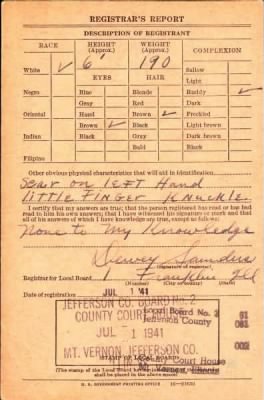 REGISTRAR'S REPORT
DESCRIPTION OF REGISTRANT
RACE HEIGHT (Approx.) WEIGHT (Approx.) COMPLEXION
White ✓ 6' 190 Sallow
EYES HAIR Light
Negro Blue Blonde Ruddy ✓
Gray Red Dark
Oriental Hazel Brown ✓ Freckled
Brown ✓ Black Light brown
Indian Black Gray Dark brown
Bald Black
Filipino
Other obvious physical characteristics that will aid in identification
Scar on left Hand
little Finger Knuckle.
I certify that my answers are true; that the person registered has read or has had read to him his own answers; that I have witnessed his signature or mark and that all of his answers of which I have knowledge are true, except as follows:
None to My Knowledge
Dewey Saunders
(Signature of registrar)
Registrar for Local Board 1 Franklin Ill
(Number) (City or county) (State)
Date of registration JUL 1 1941
JEFFERSON CO. BOARD No. 2
Local Board No. 2 61
COUNTY COURT
Jefferson County
JUL 1 1941
MT. VERNON, JEFFERSON CO.
County Court House
Mt. Vernon, Illinois
STAMP OF LOCAL BOARD
(The stamp of the Local Board
shall be placed in the above space.)
U. S. GOVERNMENT PRINTING OFFICE